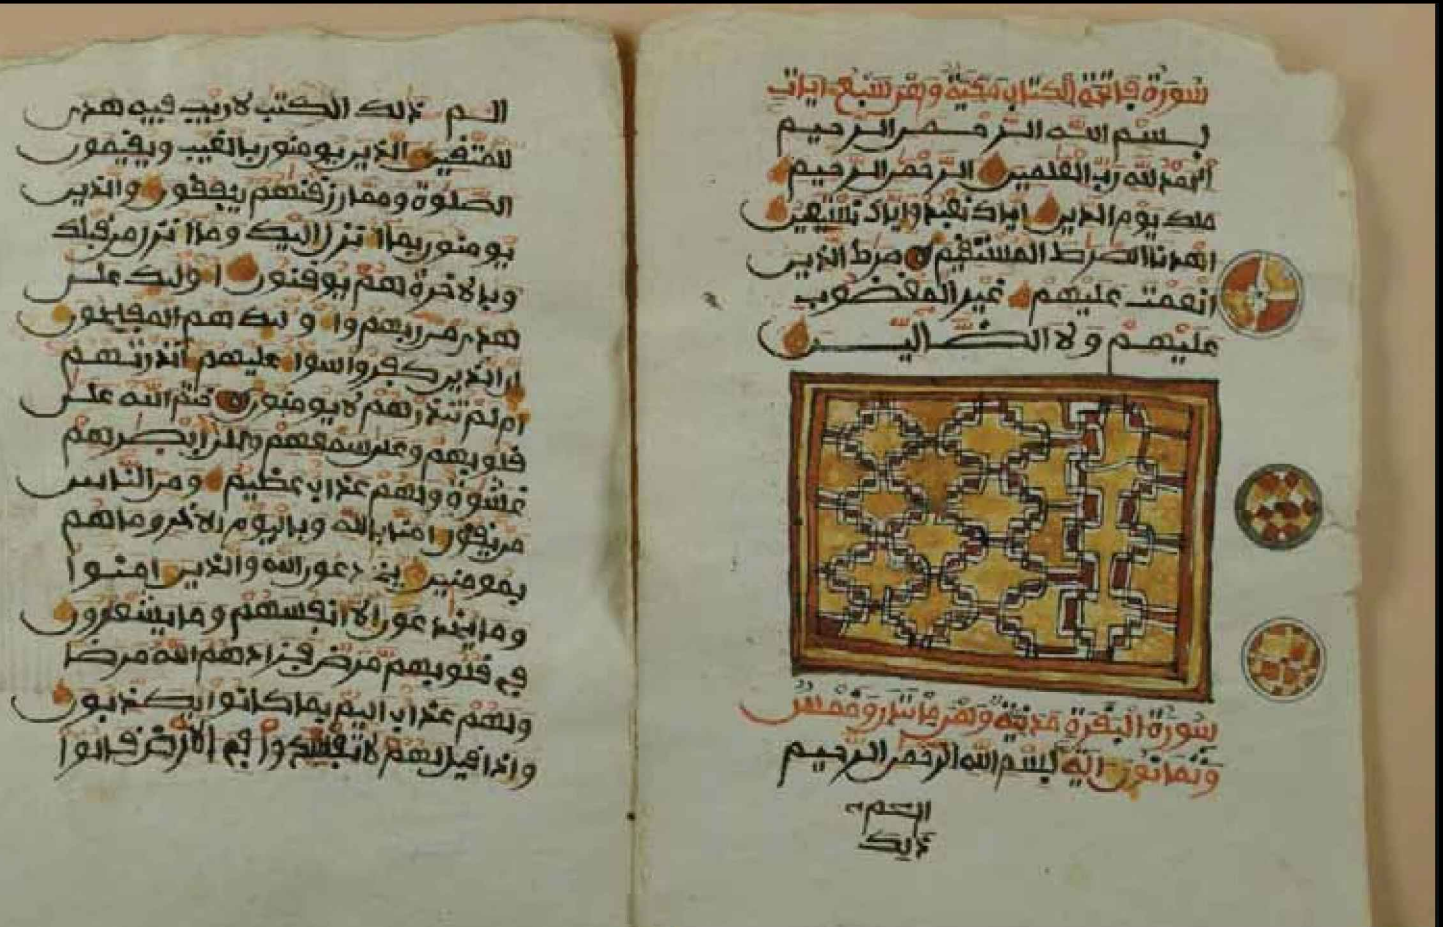 سورة فاتحة الكتاب مكية وهى سبع ايات
بسم الله الرحمن الرحيم
الحمد لله رب العلمين الرحمن الرحيم
ملك يوم الدين اياك نعبد واياك نستعين
اهدنا الصراط المستقيم صراط الذين
انعمت عليهم غير المغضوب
عليهم ولا الضالين
سورة البقرة مدنية وهى مائتان وخمس
وثمانون اية بسم الله الرحمن الرحيم
الم
ذلك
الم ذلك الكتب لا ريب فيه هدى
للمتقين الذين يومنون بالغيب ويقيمون
الصلوة ومما رزقنهم ينفقون والذين
يومنون بما انزل اليك وما انزل من قبلك
وبالاخرة هم يوقنون اولئك على
هدى من ربهم واولئك هم المفلحون
ان الذين كفروا سوا عليهم انذرتهم
ام لم تنذرهم لا يومنون ختم الله على
قلوبهم وعلى سمعهم وعلى ابصرهم
غشوة ولهم عذاب عظيم ومن الناس
من يقول امنا بالله وباليوم الاخر وما هم
بمومنين يخدعون الله والذين امنوا
وما يخدعون الا انفسهم وما يشعرون
في قلوبهم مرض فزادهم الله مرضا
ولهم عذاب اليم بما كانوا يكذبون
واذا قيل لهم لا تفسدوا في الارض قالوا